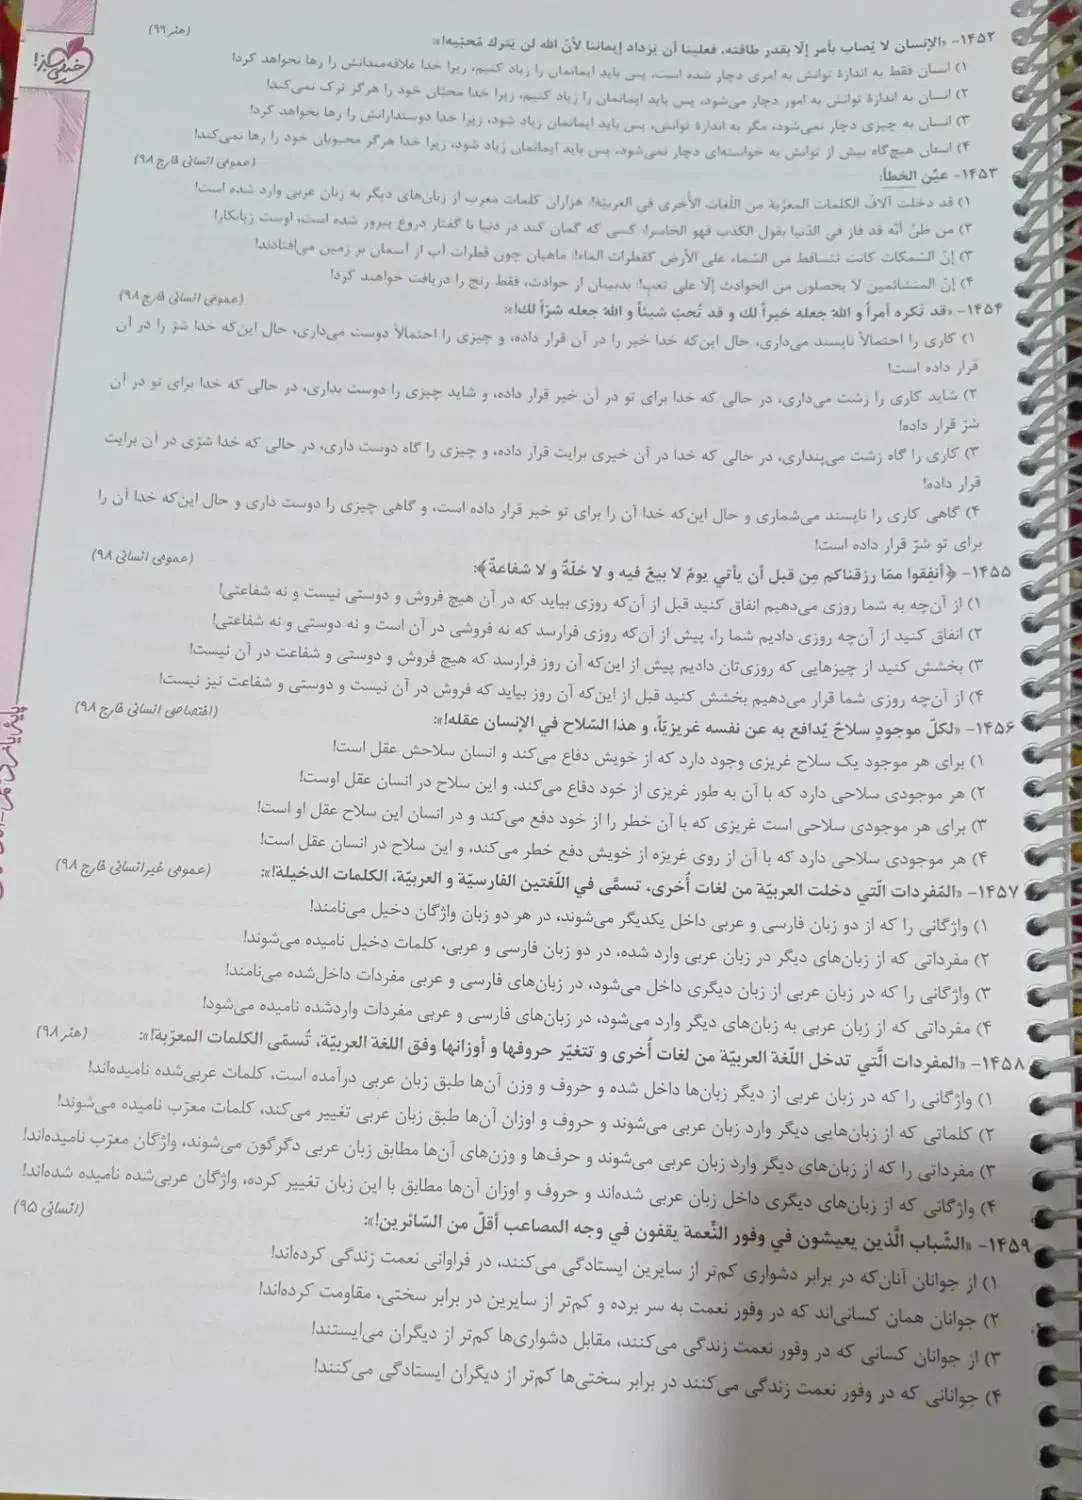 خیلی سبز!
(هنر ۹۹)
۱۴۵۲- «الإنسان لا یُصاب بأمر إلّا بقدر طاقته، فعلینا أن یزداد إیماننا لأنّ الله لن یترك مُحبّیه!»:
۱) انسان فقط به اندازهٔ توانش به امری دچار شده است، پس باید ایمانمان را زیاد کنیم، زیرا خدا علاقه‌مندانش را رها نخواهد کرد!
۲) انسان به اندازهٔ توانش به امور دچار می‌شود، پس باید ایمانمان را زیاد کنیم، زیرا خدا محبّان خود را هرگز ترک نمی‌کند!
۳) انسان به چیزی دچار نمی‌شود، مگر به اندازهٔ توانش، پس باید ایمانمان زیاد شود، زیرا خدا دوستدارانش را رها نخواهد کرد!
۴) انسان هیچ‌گاه بیش از توانش به خواسته‌ای دچار نمی‌شود، پس باید ایمانمان زیاد شود، زیرا خدا هرگز محبوبان خود را رها نمی‌کند!
(عمومی انسانی خارج ۹۸)
۱۴۵۳- عیّن الخطأ:
۱) قد دخلت آلافُ الکلمات المعرّبة من اللّغات الأخری في العربیّة!: هزاران کلمات معرب از زبان‌های دیگر به زبان عربی وارد شده است!
۲) من ظنّ أنّه قد فاز في الدّنیا بقول الکذب فهو الخاسر!: کسی که گمان کند در دنیا با گفتار دروغ پیروز شده است، اوست زیانکار!
۳) إنّ السّمکات کانت تتساقط من السّماء علی الأرض کقطرات الماء!: ماهیان چون قطرات آب از آسمان بر زمین می‌افتادند!
۴) إنّ المتشائمین لا یحصلون من الحوادث إلّا علی تعبٍ!: بدبینان از حوادث، فقط رنج را دریافت خواهند کرد!
(عمومی انسانی خارج ۹۸)
۱۴۵۴- «قد تَکره أمراً و اللهُ جعله خیراً لك و قد تُحبّ شیئاً و اللهُ جعله شرّاً لك!»:
۱) کاری را احتمالاً ناپسند می‌داری، حال این‌که خدا خیر را در آن قرار داده، و چیزی را احتمالاً دوست می‌داری، حال این‌که خدا شرّ را در آن
قرار داده است!
۲) شاید کاری را زشت می‌داری، در حالی که خدا برای تو در آن خیر قرار داده، و شاید چیزی را دوست بداری، در حالی که خدا برای تو در آن
شرّ قرار داده!
۳) کاری را گاه زشت می‌پنداری، در حالی که خدا در آن خیری برایت قرار داده، و چیزی را گاه دوست داری، در حالی که خدا شرّی در آن برایت
قرار داده!
۴) گاهی کاری را ناپسند می‌شماری و حال این‌که خدا آن را برای تو خیر قرار داده است، و گاهی چیزی را دوست داری و حال این‌که خدا آن را
برای تو شرّ قرار داده است!
(عمومی انسانی ۹۸)
۱۴۵۵- ﴿أنفِقوا ممّا رزقناکم مِن قبل أن یأتي یومٌ لا بیعٌ فیه و لا خلّةٌ و لا شفاعةٌ﴾:
۱) از آن‌چه به شما روزی می‌دهیم انفاق کنید قبل از آن‌که روزی بیاید که در آن هیچ فروش و دوستی نیست و نه شفاعتی!
۲) انفاق کنید از آن‌چه روزی دادیم شما را، پیش از آن‌که روزی فرارسد که نه فروشی در آن است و نه دوستی و نه شفاعتی!
۳) بخشش کنید از چیزهایی که روزی‌تان دادیم پیش از این‌که آن روز فرارسد که هیچ فروش و دوستی و شفاعت در آن نیست!
۴) از آن‌چه روزی شما قرار می‌دهیم بخشش کنید قبل از این‌که آن روز بیاید که فروش در آن نیست و دوستی و شفاعت نیز نیست!
(اختصاصی انسانی خارج ۹۸)
۱۴۵۶- «لکلّ موجودٍ سلاحٌ یُدافع به عن نفسه غریزیّاً، و هذا السّلاح في الإنسان عقله!»:
۱) برای هر موجود یک سلاح غریزی وجود دارد که از خویش دفاع می‌کند و انسان سلاحش عقل است!
۲) هر موجودی سلاحی دارد که با آن به طور غریزی از خود دفاع می‌کند، و این سلاح در انسان عقل اوست!
۳) برای هر موجودی سلاحی است غریزی که با آن خطر را از خود دفع می‌کند و در انسان این سلاح عقل او است!
۴) هر موجودی سلاحی دارد که با آن از روی غریزه از خویش دفع خطر می‌کند، و این سلاح در انسان عقل است!
(عمومی غیرانسانی خارج ۹۸)
۱۴۵۷- «المُفردات الّتي دخلت العربیّة من لغات أُخری، تسمَّی في اللّغتین الفارسیّة و العربیّة، الکلمات الدخیلة!»:
۱) واژگانی را که از دو زبان فارسی و عربی داخل یکدیگر می‌شوند، در هر دو زبان واژگان دخیل می‌نامند!
۲) مفرداتی که از زبان‌های دیگر در زبان عربی وارد شده، در دو زبان فارسی و عربی، کلمات دخیل نامیده می‌شوند!
۳) واژگانی را که در زبان عربی از زبان دیگری داخل می‌شود، در زبان‌های فارسی و عربی مفردات داخل‌شده می‌نامند!
۴) مفرداتی که از زبان عربی به زبان‌های دیگر وارد می‌شود، در زبان‌های فارسی و عربی مفردات واردشده نامیده می‌شود!
(هنر ۹۸)
۱۴۵۸- «المفردات الَّتي تدخل اللّغة العربیّة من لغات أُخری و تتغیّر حروفها و أوزانها وفق اللغة العربیّة، تُسمّی الکلمات المعرّبة!»:
۱) واژگانی را که در زبان عربی از دیگر زبان‌ها داخل شده و حروف و وزن آن‌ها طبق زبان عربی درآمده است، کلمات عربی‌شده نامیده‌اند!
۲) کلماتی که از زبان‌هایی دیگر وارد زبان عربی می‌شوند و حروف و اوزان آن‌ها طبق زبان عربی تغییر می‌کند، کلمات معرّب نامیده می‌شوند!
۳) مفرداتی را که از زبان‌های دیگر وارد زبان عربی می‌شوند و حرف‌ها و وزن‌های آن‌ها مطابق زبان عربی دگرگون می‌شوند، واژگان معرّب نامیده‌اند!
۴) واژگانی که از زبان‌های دیگری داخل زبان عربی شده‌اند و حروف و اوزان آن‌ها مطابق با این زبان تغییر کرده، واژگان عربی‌شده نامیده شده‌اند!
(انسانی ۹۵)
۱۴۵۹- «الشّباب الَّذین یعیشون في وفور النّعمة یقفون في وجه المصاعب أقلّ من السّائرین!»:
۱) از جوانان آنان‌که در برابر دشواری کم‌تر از سایرین ایستادگی می‌کنند، در فراوانی نعمت زندگی کرده‌اند!
۲) جوانان همان کسانی‌اند که در وفور نعمت به سر برده و کم‌تر از سایرین در برابر سختی، مقاومت کرده‌اند!
۳) از جوانان کسانی که در وفور نعمت زندگی می‌کنند، مقابل دشواری‌ها کم‌تر از دیگران می‌ایستند!
۴) جوانانی که در وفور نعمت زندگی می‌کنند در برابر سختی‌ها کم‌تر از دیگران ایستادگی می‌کنند!